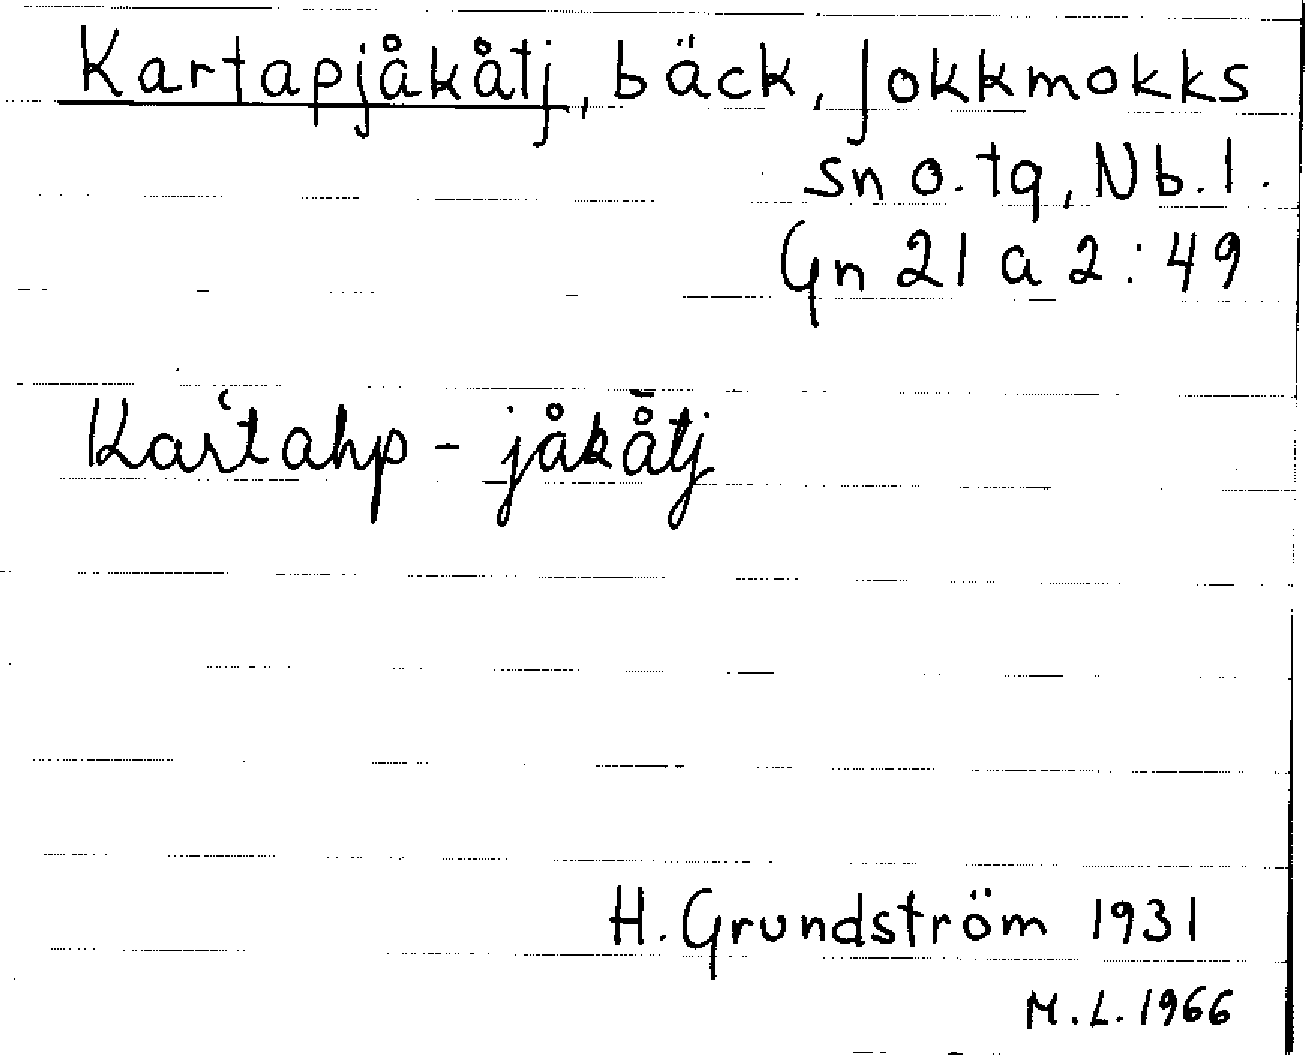 Kartapjåkåtj, bäck, Jokkmokks
sn o. tq, Nb. l.
Gn 21 a 2:49
Kar‘tahp - jåkå̄tj
H. Grundström 1931
M. L. 1966